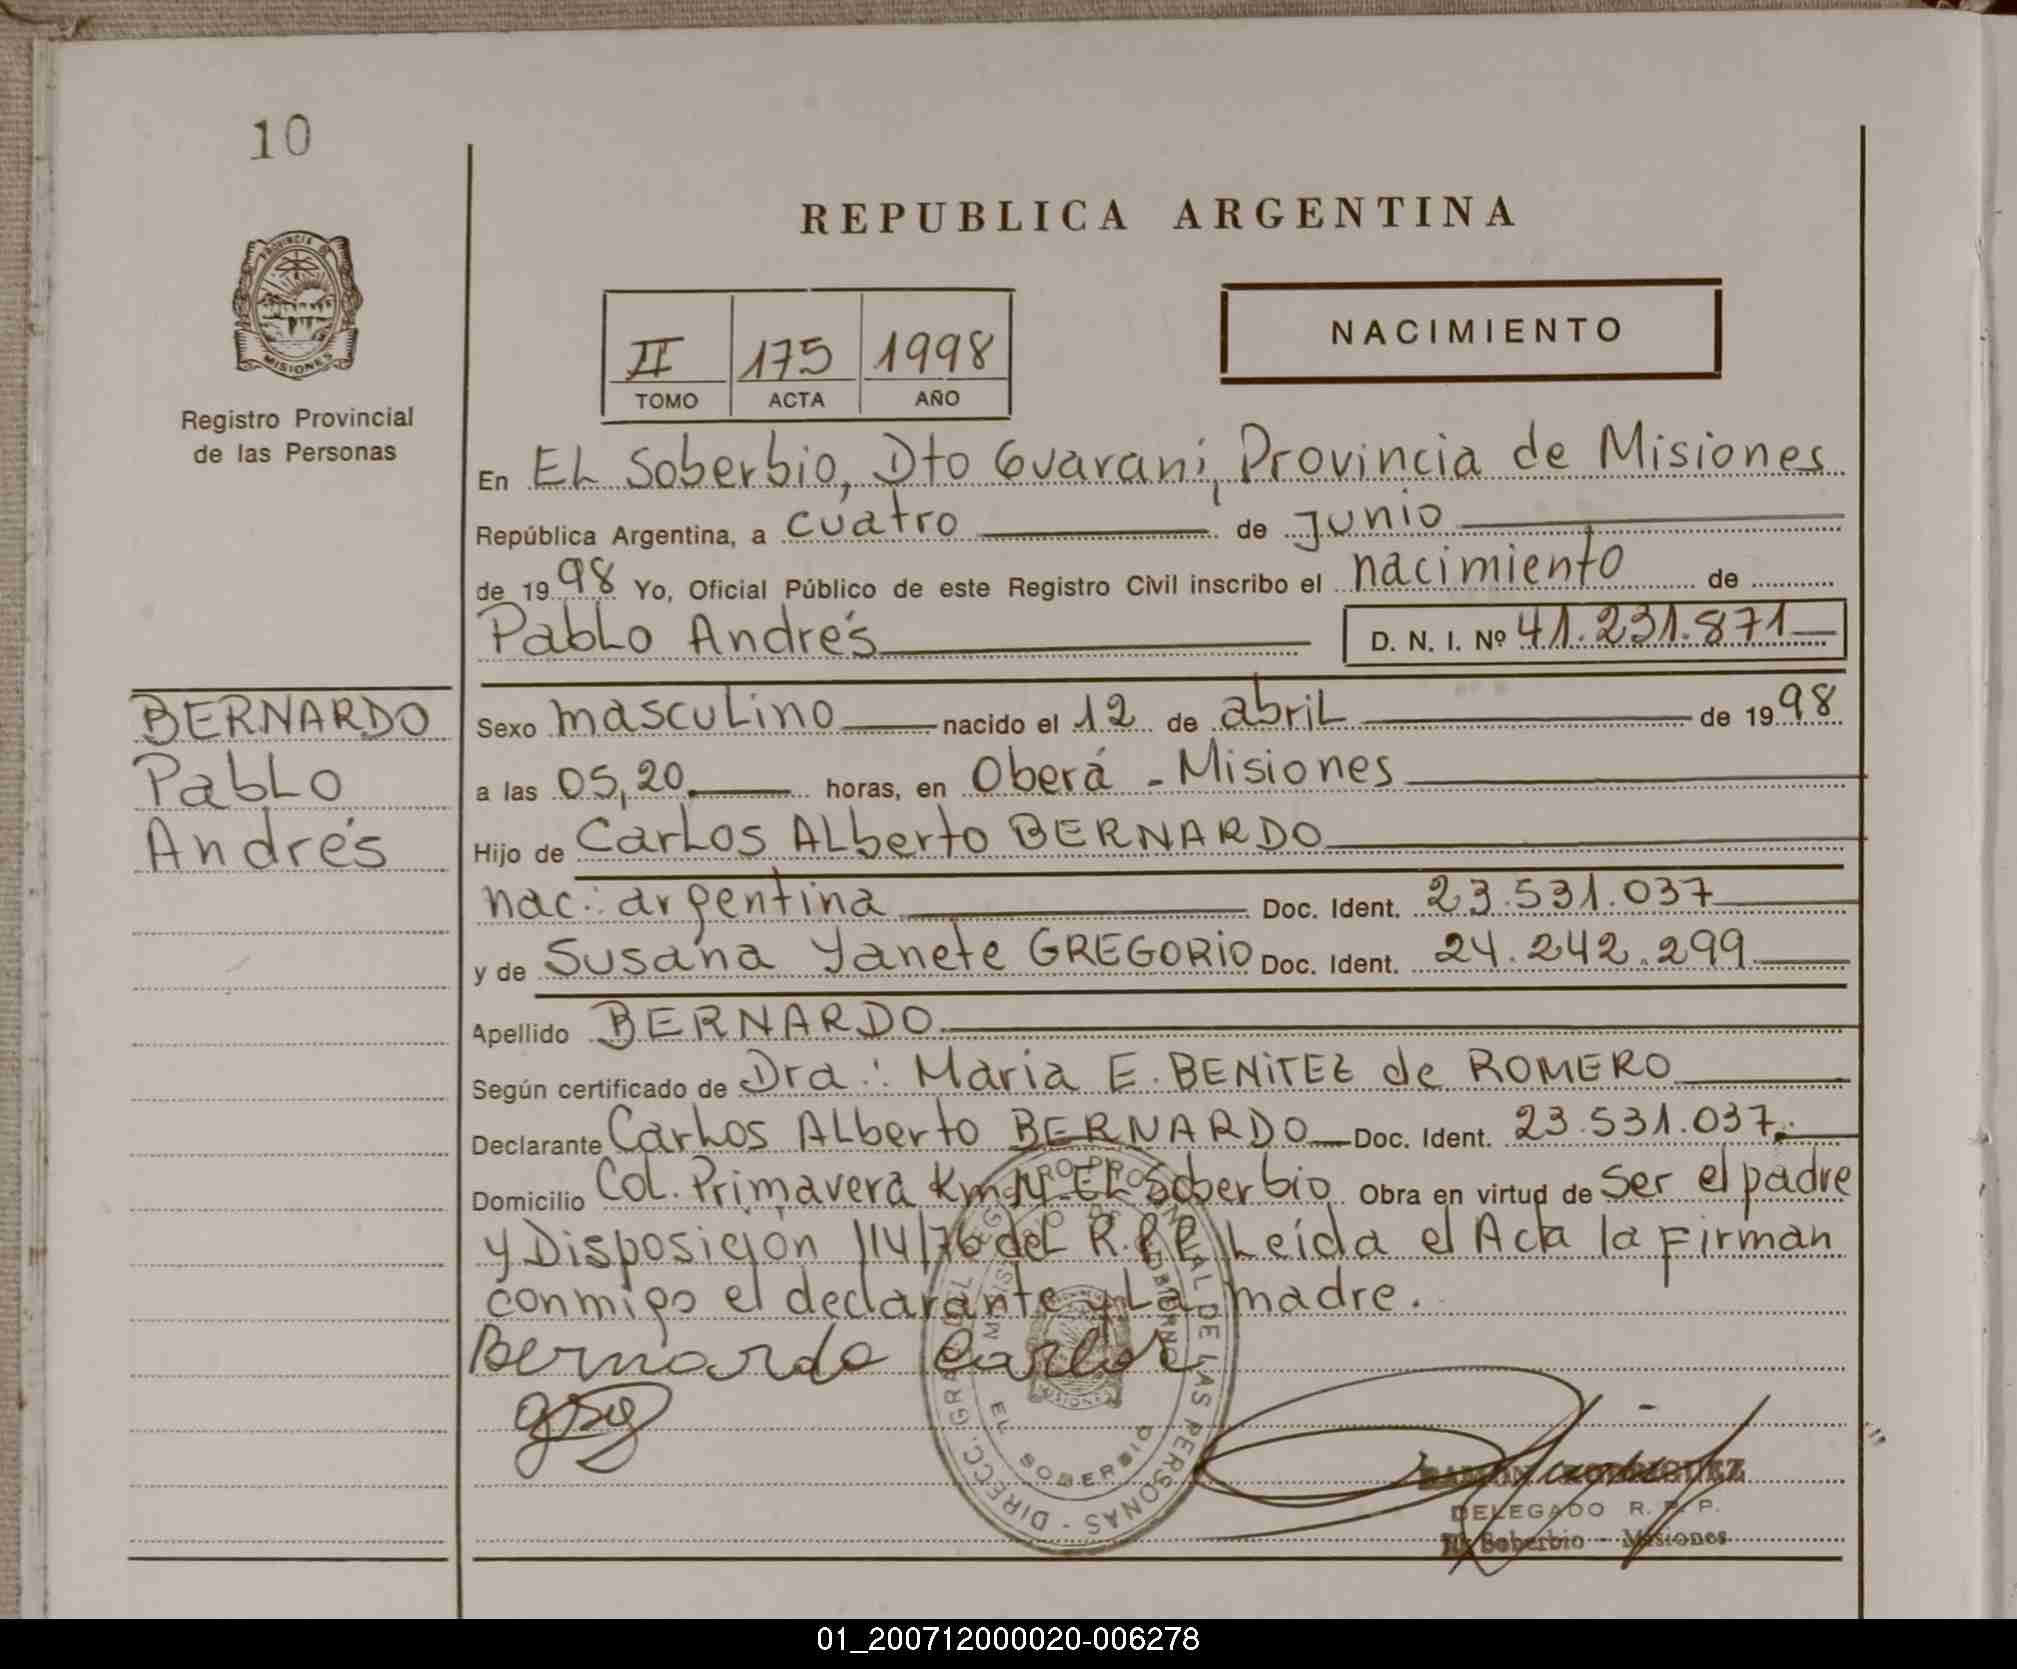 10
REPUBLICA ARGENTINA
PROVINCIA DE
MISIONES
Registro Provincial
de las Personas
II 175 1998
TOMO ACTA AÑO
NACIMIENTO
En EL Soberbio, Dto Guaraní, Provincia de Misiones
República Argentina, a cuatro de junio
de 1998 Yo, Oficial Público de este Registro Civil inscribo el nacimiento de
Pablo Andrés D. N. I. Nº 41.231.871
BERNARDO
Pablo
Andrés
Sexo masculino nacido el 12 de abril de 1998
a las 05,20 horas, en Oberá - Misiones
Hijo de Carlos Alberto BERNARDO
nac.: argentina Doc. Ident. 23.531.037
y de Susana Yanete GREGORIO Doc. Ident. 24.242.299
Apellido BERNARDO
Según certificado de Dra.: Maria E. BENITEZ de ROMERO
Declarante Carlos Alberto BERNARDO Doc. Ident. 23.531.037.
Domicilio Col. Primavera Km EL Soberbio Obra en virtud de ser el padre
y Disposición 114/76 del R.P.P. Leída el Acta la firman
conmigo el declarante y La madre.
Bernardo Carlos
DIRECC. GRAL. DEL REGISTRO PROVINCIAL DE LAS PERSONAS
EL SOBERBIO
RAMON RODRIGUEZ
DELEGADO R. P. P.
El Soberbio - Misiones
01_200712000020-006278